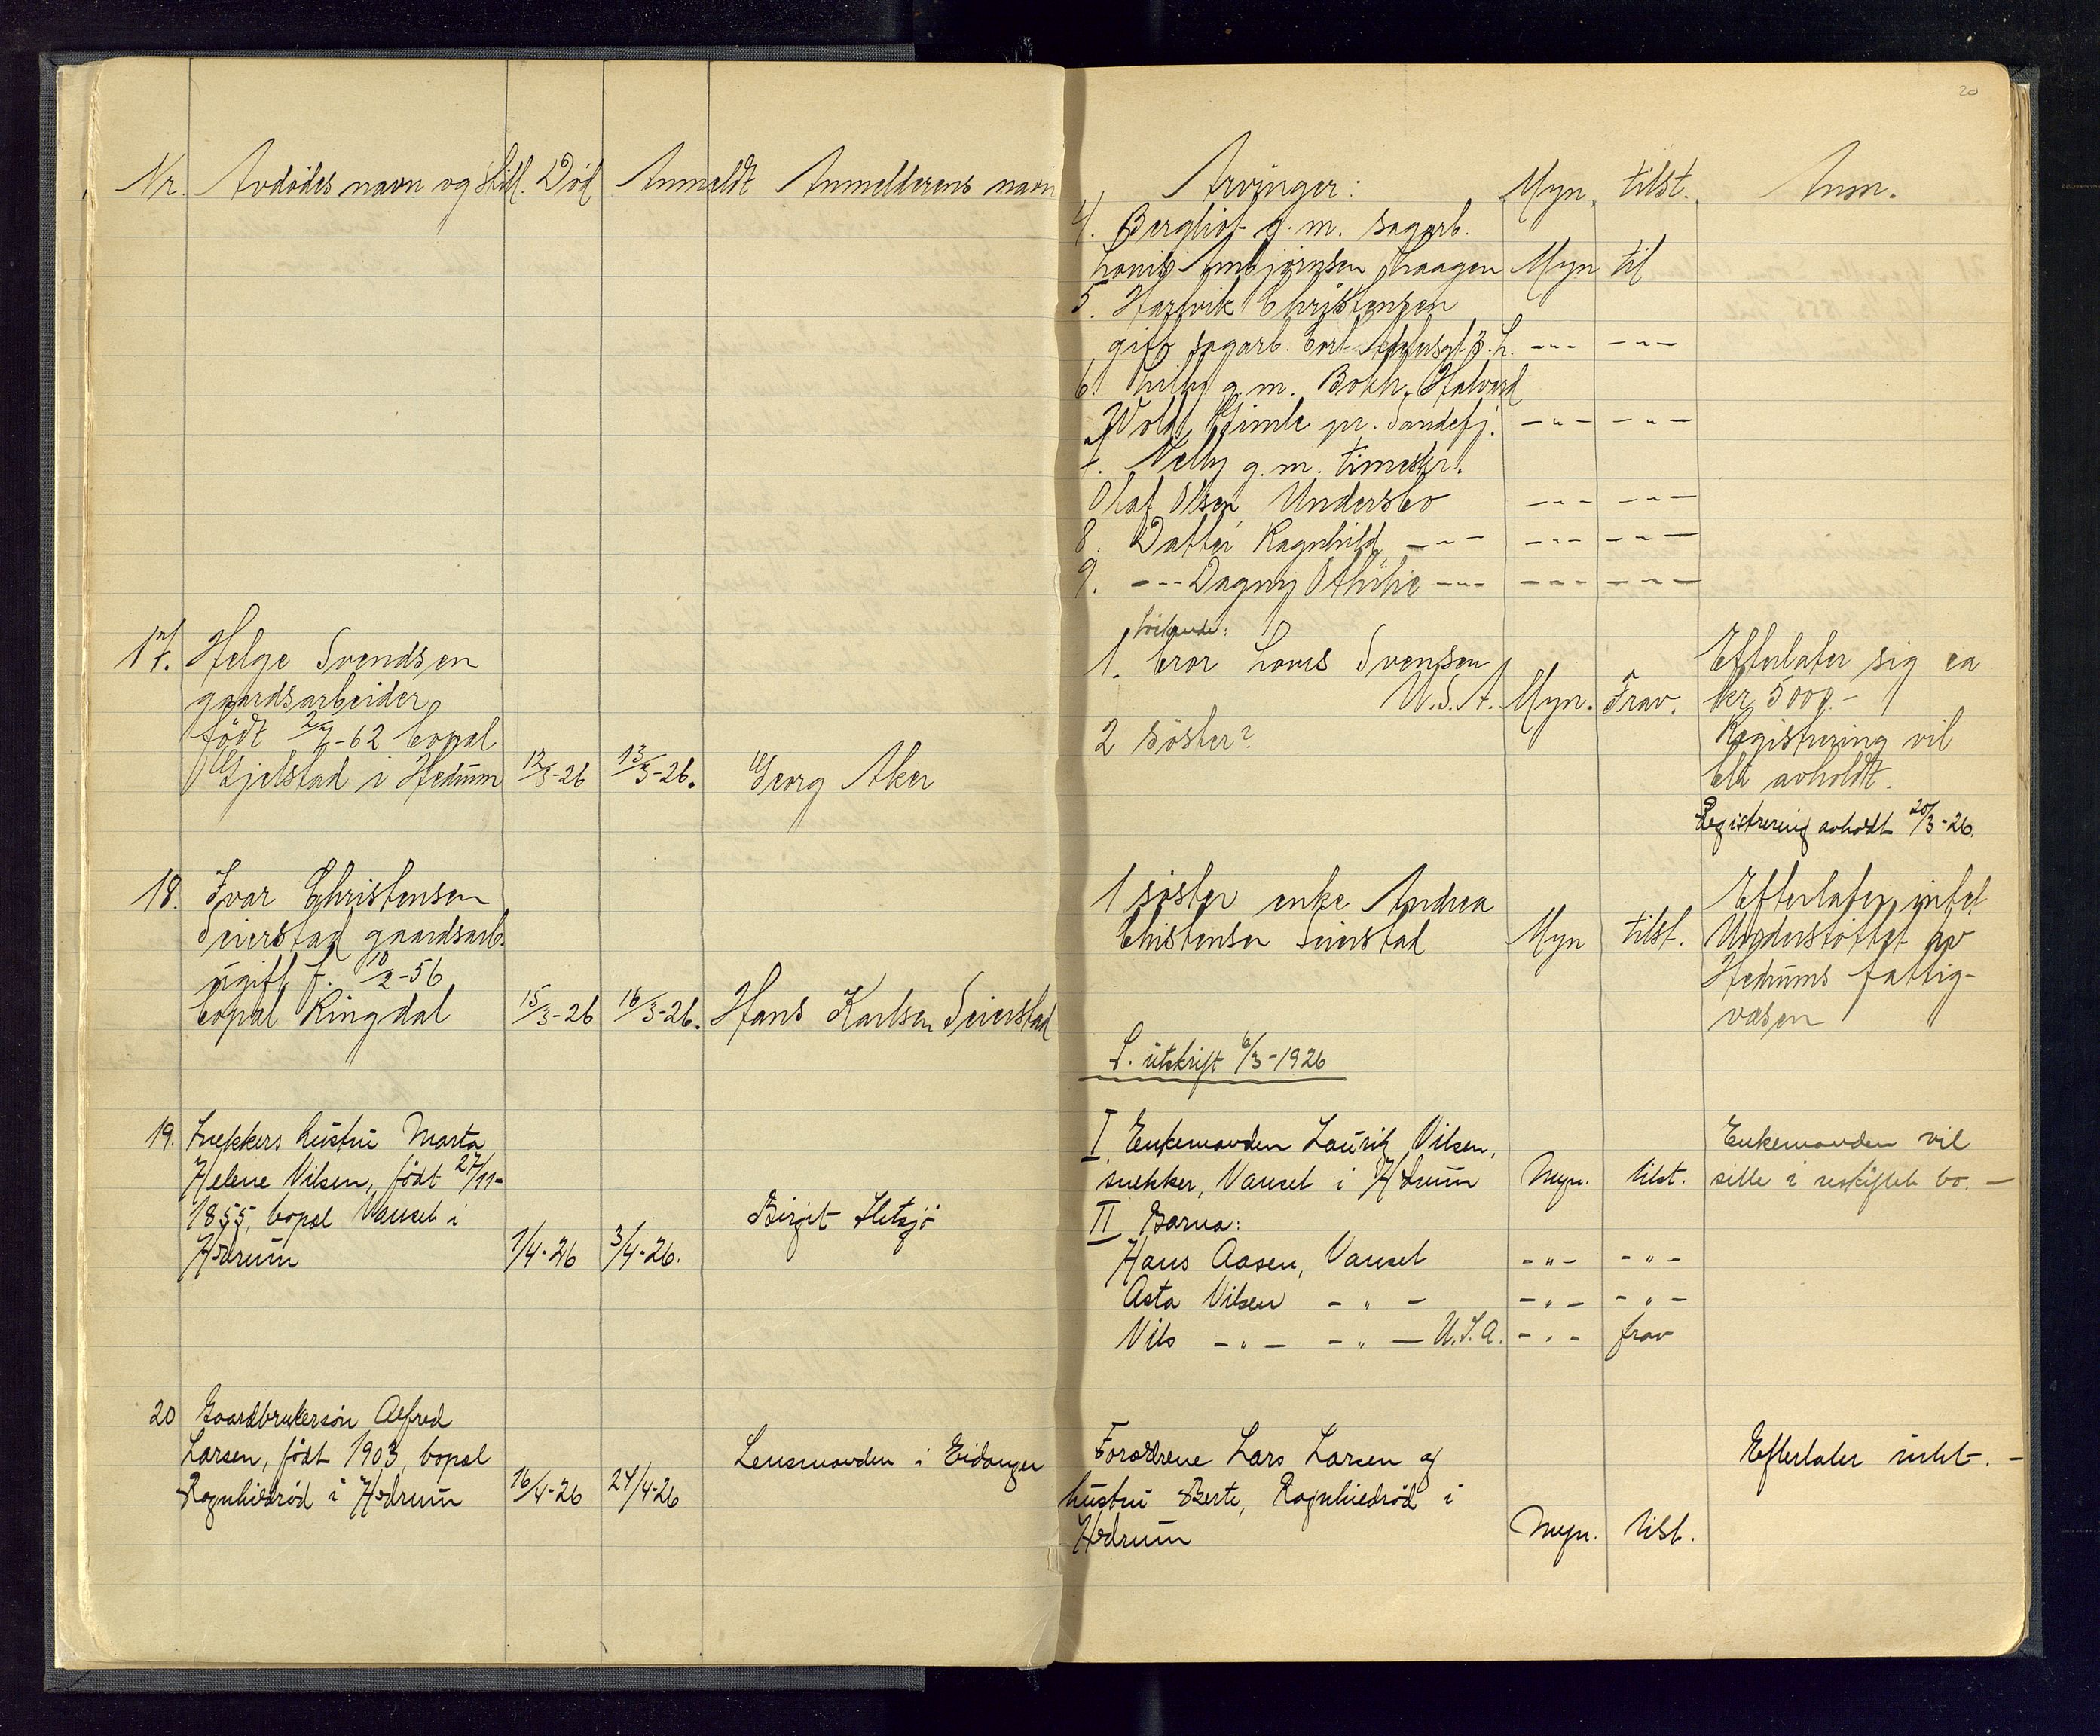 20
Nr. Avdödes navn og still. Död Anmeldt Anmelderens navn
17. Helge Svendsen
gaardsarbeider
födt 2/7-62 bopal
Gjelstad i Hedrum 12/3-26 13/3-26. Georg Aker
18. Ivar Christensen
Seierstad gaardsarb.
ugift f. 10/2-56
bopal Ringdal 15/3-26 16/3-26. Hans Karlsen Seierstad
19. Snekkers hustru Marta
Helene Nilsen, födt 27/11-
1855, bopæl Vauset i Birgit Hetsjö
Hedrum 1/4-26 3/4-26.
20 Gaardbrukersön Alfred
Larsen, födt 1903, bopæl Lensmanden i Eidanger
Ragnhildröd i Hedrum 16/4-26 24/4-26
Arvinger: Myn. tilst. Anm.
4. Bergliot g. m. sagarb.
Louis Ambjörnsen Laagen Myn til
5. Hartvik Christensen
gift sagarb. L. -"- -"-
6. Lilly g. m. Halvard
Wold Gimle pr. Sandefj. -"- -"-
7. Nelly g. m.
Olaf Olsen Undersbo -"- -"-
8. Datter Ragnhild -"- -"- -"-
9. -"- Dagny Othilie -"- -"- -"-
Söskende:
1. bror Louis Svensen Efterlater sig ca
U.S.A. Myn. Frav. kr 5000.-
2 söster? Registrering vil
bli avholdt.
Registrering avholdt 20/3-26.
1 söster enke Andrea Efterlater intet
Christensen Seierstad Myn tilst. Understöttet av
Hedrums fattig-
væsen
S. utskrift 6/3-1926
I Enkemanden Lauritz Nilsen, Enkemanden vil
snekker, Vauset i Hedrum Myn. tilst. sitte i uskiftet bo. -
II Barna:
Hans Aasen, Vauset -"- -"-
Asta Nilsen -"- -"- -"-
Nils -"- -"- U.S.A. -"- frav
Forældrene Lars Larsen og Efterlater intet. -
hustru Berte, Ragnhildröd i
Hedrum Myn. tilst.